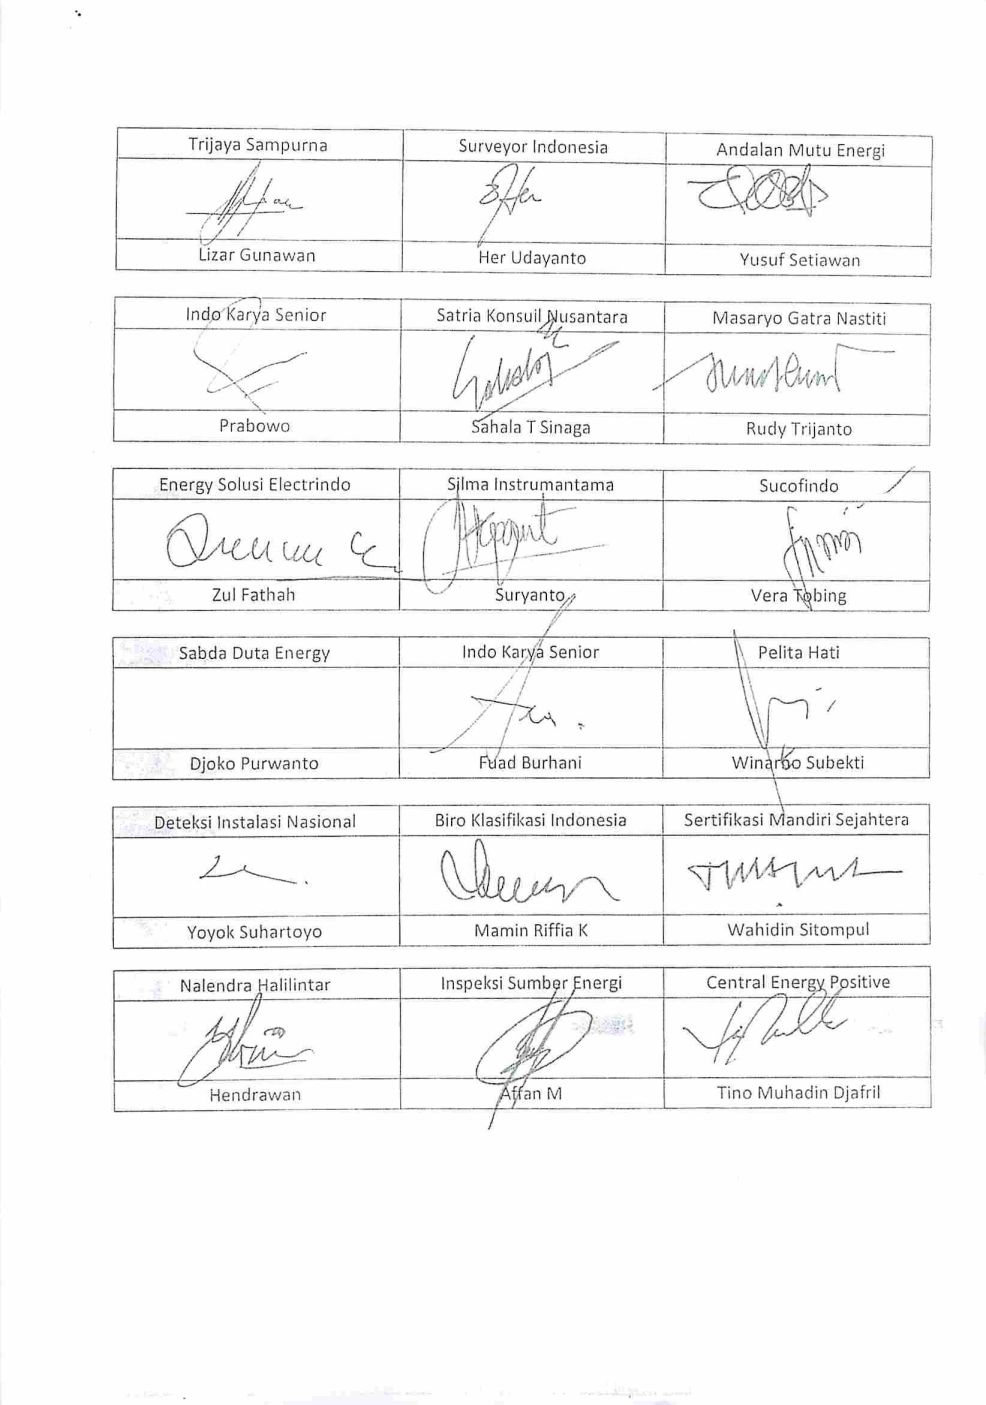 Trijaya Sampurna Surveyor Indonesia Andalan Mutu Energi
Lizar Gunawan Her Udayanto Yusuf Setiawan
Indo Karya Senior Satria Konsuil Nusantara Masaryo Gatra Nastiti
Prabowo Sahala T Sinaga Rudy Trijanto
Energy Solusi Electrindo Silma Instrumantama Sucofindo
Zul Fathah Suryanto Vera Tobing
Sabda Duta Energy Indo Karya Senior Pelita Hati
Djoko Purwanto Fuad Burhani Winarso Subekti
Deteksi Instalasi Nasional Biro Klasifikasi Indonesia Sertifikasi Mandiri Sejahtera
Yoyok Suhartoyo Mamin Riffia K Wahidin Sitompul
Nalendra Halilintar Inspeksi Sumber Energi Central Energy Positive
Hendrawan Affan M Tino Muhadin Djafril